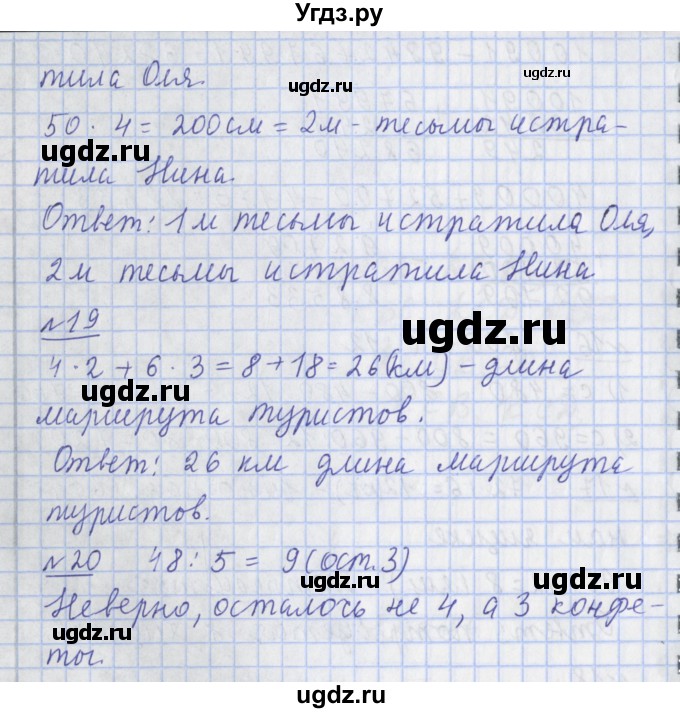 Угдз.ру
тила Оля.
ugdz.ru
50 · 4 = 200 см = 2м - тесьмы истра-
ugdz.ru ugdz.ru
тила Нина.
Ответ: 1 м тесьмы истратила Оля,
2м тесьмы истратила Нина
№19
ugdz.ru
4 · 2 + 6 · 3 = 8 + 18 = 26 (км) - длина
маршрута туристов.
Ответ: 26 км длина маршрута
ugdz.ru
туристов.
№20 48 : 5 = 9 (ост. 3)
ugdz.ru ugdz.ru
Неверно, осталось не 4, а 3 конфе-
ты.
ugdz.ru
ugdz.ru